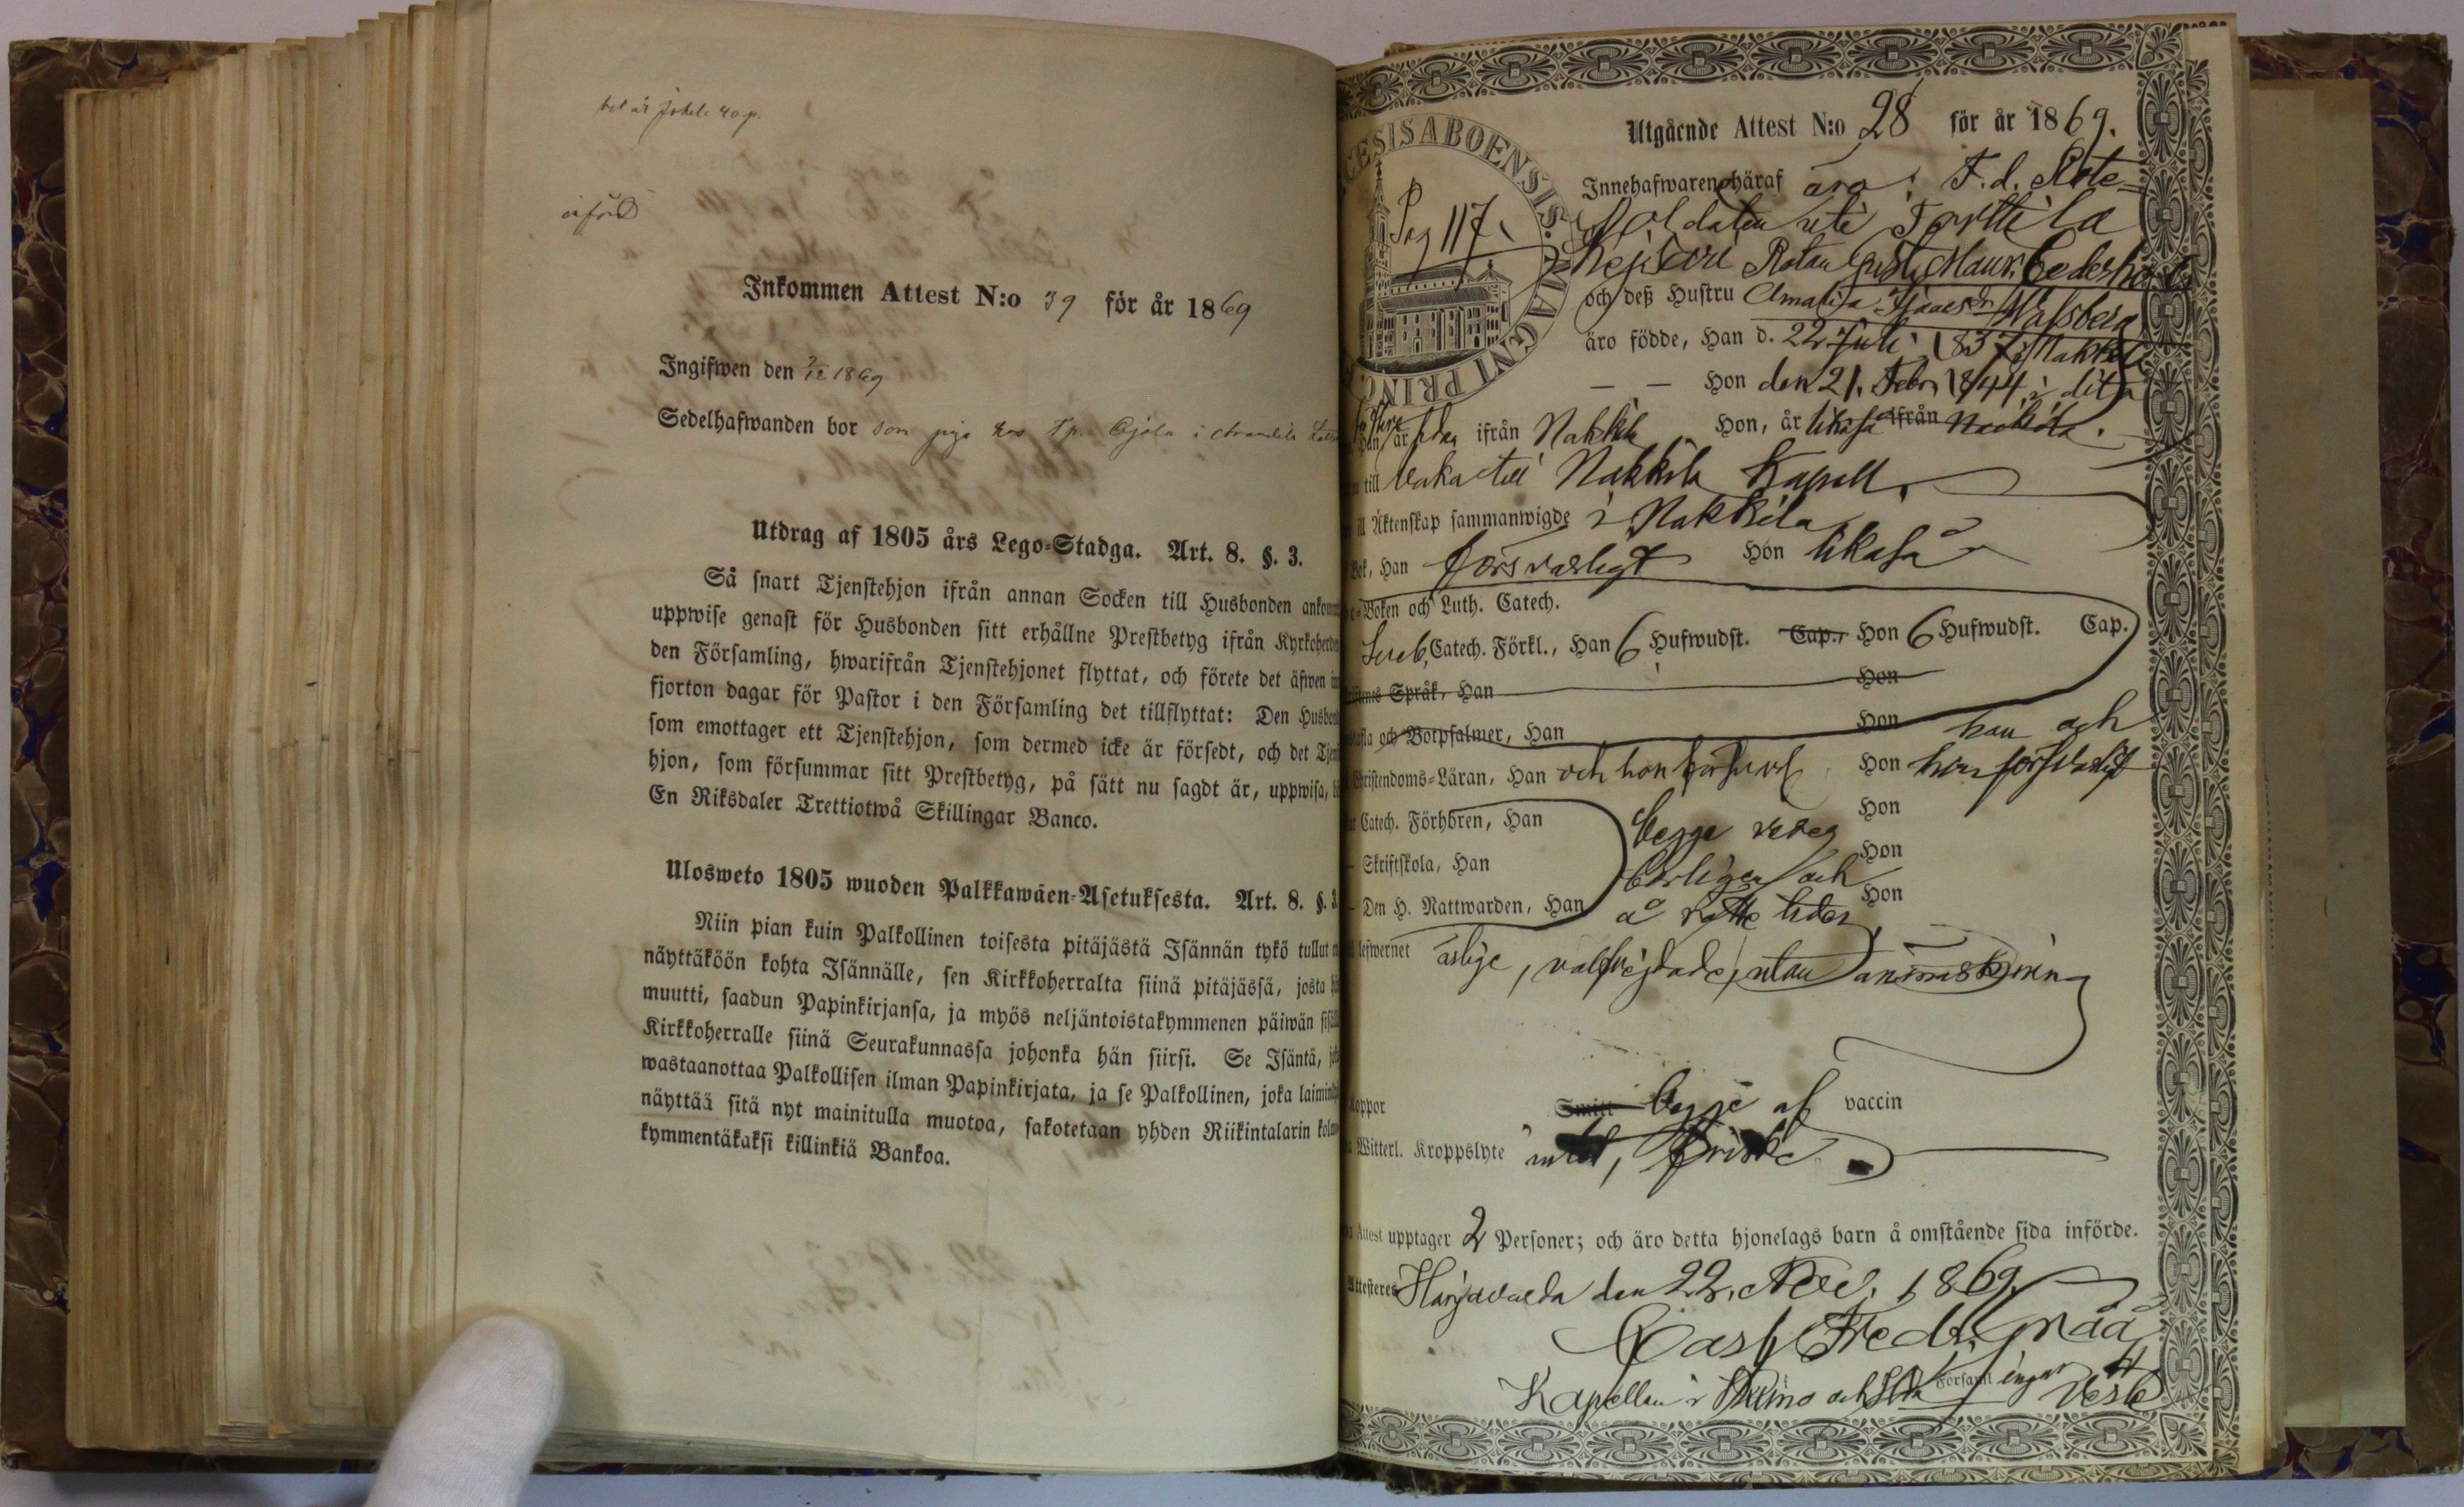 införd
Inkommen Attest N:o 39 för år 1869
Ingifwen den 7/12 1869
Sedelhafwanden bor som piga hos
Utdrag af 1805 års Lego-Stadga. Art. 8. §. 3.
Så snart Tjenstehjon ifrån annan Socken till Husbonden
uppwise genast för Husbonden sitt erhållne Prestbetyg ifrån
den Församling, hwarifrån Tjenstehjonet flyttat, och förete det äfwen
fjorton dagar för Pastor i den Församling det tillflyttat: Den
som emottager ett Tjenstehjon, som dermed icke är försedt, och det
hjon, som försummar sitt Prestbetyg, på sätt nu sagdt är, uppwisa,
En Riksdaler Trettiotwå Skillingar Banco.
Ulosweto 1805 wuoden Palkkawäen-Asetuksesta. Art. 8. §. 3.
Niin pian kuin Palkollinen toisesta pitäjästä Isännän tykö tullut
näyttäköön kohta Isännälle, sen Kirkkoherralta siinä pitäjässä, josta
muutti, saadun Papinkirjansa, ja myös neljäntoistakymmenen päiwän
Kirkkoherralle siinä Seurakunnassa johonka hän siirsi. Se Isäntä,
wastaanottaa Palkollisen ilman Papinkirjata, ja se Palkollinen, joka
näyttää sitä nyt mainitulla muotoa, sakotetaan yhden Riikintalarin
kymmentäkaksi killinkiä Bankoa.
CESIS ABOENSIS MAGNI PRINC
Pag 117.
Utgående Attest N:o 28 för år 1869.
Innehafwaren häraf äro: F. d. Rote-
Soldaten uti Torttila
Rotan Gust. Maur. Cederholm
och deß Hustru Amalia Isaacsdr
äro födde, Han d. 22 Juli 1837 i Nakkila
— — Hon den 21. Febr. 1844 i dito
ifrån Nakkila Hon, år likaså ifrån Nackila.
till Nakkila Kapell.
till Äktenskap sammanwigde i Nakkila
Bok, Han försvarligt Hon likaså
Boken och Luth. Catech.
Sveb. Catech. Förkl., Han 6 Hufwudst. Cap., Hon 6 Hufwudst. Cap.
Språk, Han Hon
och Botpsalmer, Han Hon han och
Christendoms-Läran, Han och hon försvarl Hon hon försvarligt
Catech. Förhören, Han Hon
begge
Skriftskola, Han Hon
börligen och
Den H. Nattwarden, Han Hon
å rätte tider
lefwernet ärlige, välfrejdade, utan anmärkning
koppor Smitt begge af vaccin
Witterl. Kroppslyte intet, friske
Attest upptager 2 Personer; och äro detta hjonelags barn å omstående sida införde.
Attesteres Harjavalda den 22. Nov. 1869.
Carl Fredr. Gråå
Kapellan i